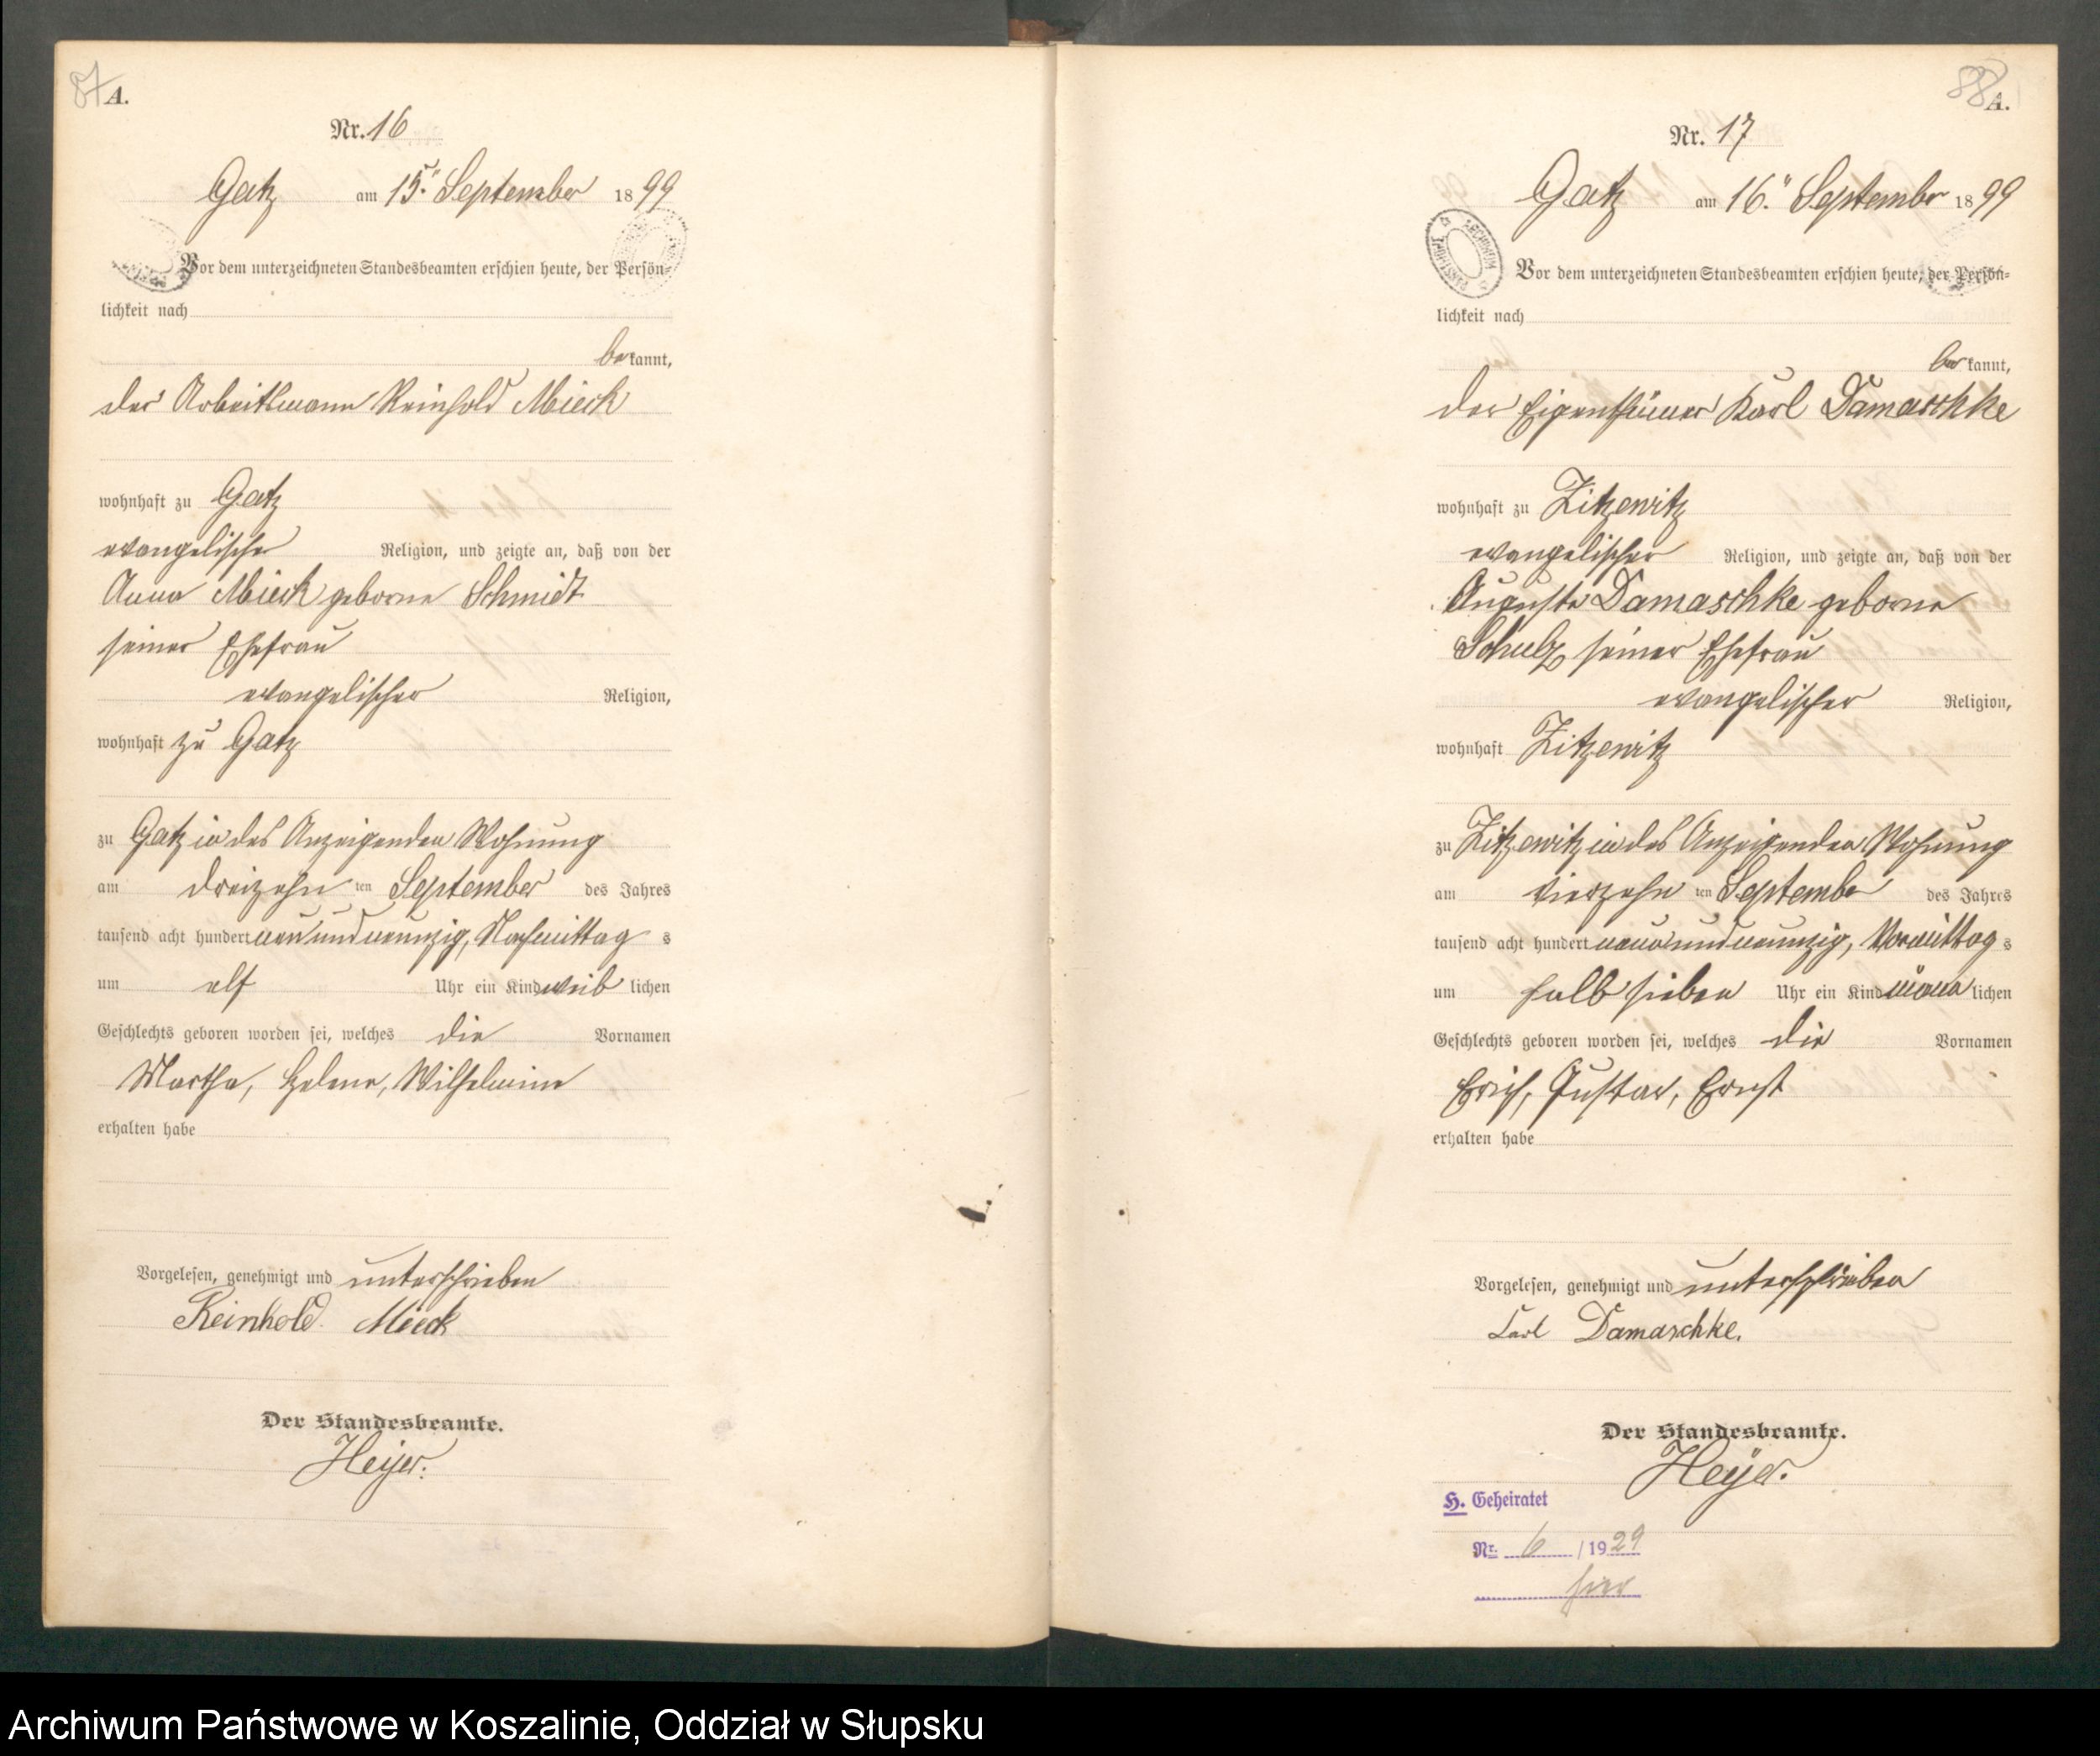 87
A.
Nr. 16
Gatz am 15." September 1899
Vor dem unterzeichneten Standesbeamten erschien heute, der Persön-
lichkeit nach
bekannt,
der Arbeitsmann Reinhold Mieck
wohnhaft zu Gatz
evangelischer Religion, und zeigte an, daß von der
Anna Mieck geborne Schmidt
seiner Ehefrau
evangelischer Religion,
wohnhaft zu Gatz
zu Gatz in des Anzeigenden Wohnung
am dreizehn ten September des Jahres
tausend acht hundert neunundneunzig, Nachmittag s
um elf Uhr ein Kind weib lichen
Geschlechts geboren worden sei, welches die Vornamen
Martha, Helene, Wilhelmine
erhalten habe
Vorgelesen, genehmigt und unterschrieben
Reinhold Mieck
Der Standesbeamte.
Heyer.
88
A.
Nr. 17
Gatz am 16." September 1899
Vor dem unterzeichneten Standesbeamten erschien heute, der Persön-
lichkeit nach
bekannt,
der Eigenthümer Karl Damaschke
wohnhaft zu Zitzewitz
evangelischer Religion, und zeigte an, daß von der
Auguste Damaschke geborne
Schulz seiner Ehefrau
evangelischer Religion,
wohnhaft Zitzewitz
zu Zitzewitz in des Anzeigenden Wohnung
am vierzehn ten September des Jahres
tausend acht hundert neunundneunzig, Vormittag s
um halb sieben Uhr ein Kind männ lichen
Geschlechts geboren worden sei, welches die Vornamen
Erich, Gustav, Ernst
erhalten habe
Vorgelesen, genehmigt und unterschrieben
Carl Damaschke.
Der Standesbeamte.
Heyer.
H. Geheiratet
Nr. 6 /1929
hier
Archiwum Państwowe w Koszalinie, Oddział w Słupsku